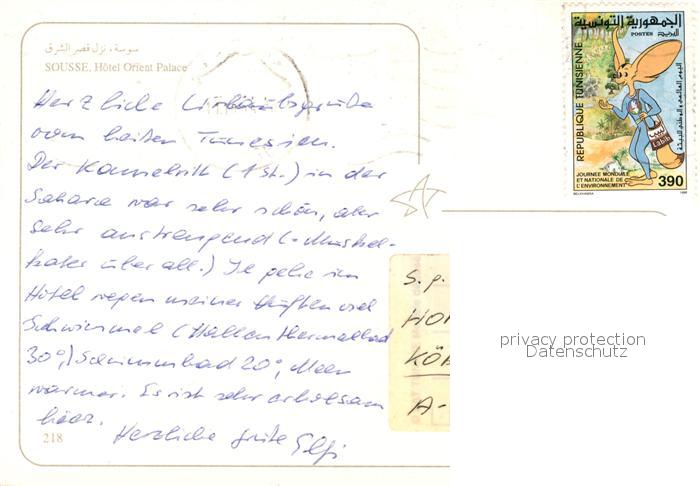 سوسة، نزل قصر الشرق
SOUSSE, Hôtel Orient Palace
Herzliche Urlaubsgrüße
vom heißen Tunesien.
Der Kamelritt (1 St.) in der
Sahara war sehr schön, aber
sehr anstrengend (-Muskel-
kater überall.) Ich gehe im
Hotel wegen meiner Hüften viel
Schwimmen (Hallenthermalbad
30°,) Schwimmbad 20°, Meer
wärmer. Es ist sehr erholsam
hier.
Herzliche Grüße Elfi
218
الجمهورية التونسية
POSTES البريد
REPUBLIQUE TUNISIENNE
اليوم العالمي والوطني للبيئة
لبيب
Labib
JOURNEE MONDIALE
ET NATIONALE DE
L'ENVIRONNEMENT
390
S.g.
HO
KÖ
A-
privacy protection
Datenschutz